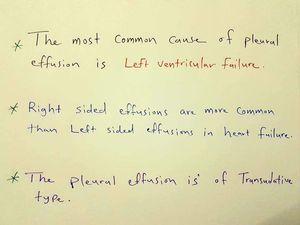 * The most common cause of pleural
effusion is Left ventricular failure.
* Right sided effusions are more common
than Left sided effusions in heart failure.
* The pleural effusion is of Transudative
type.